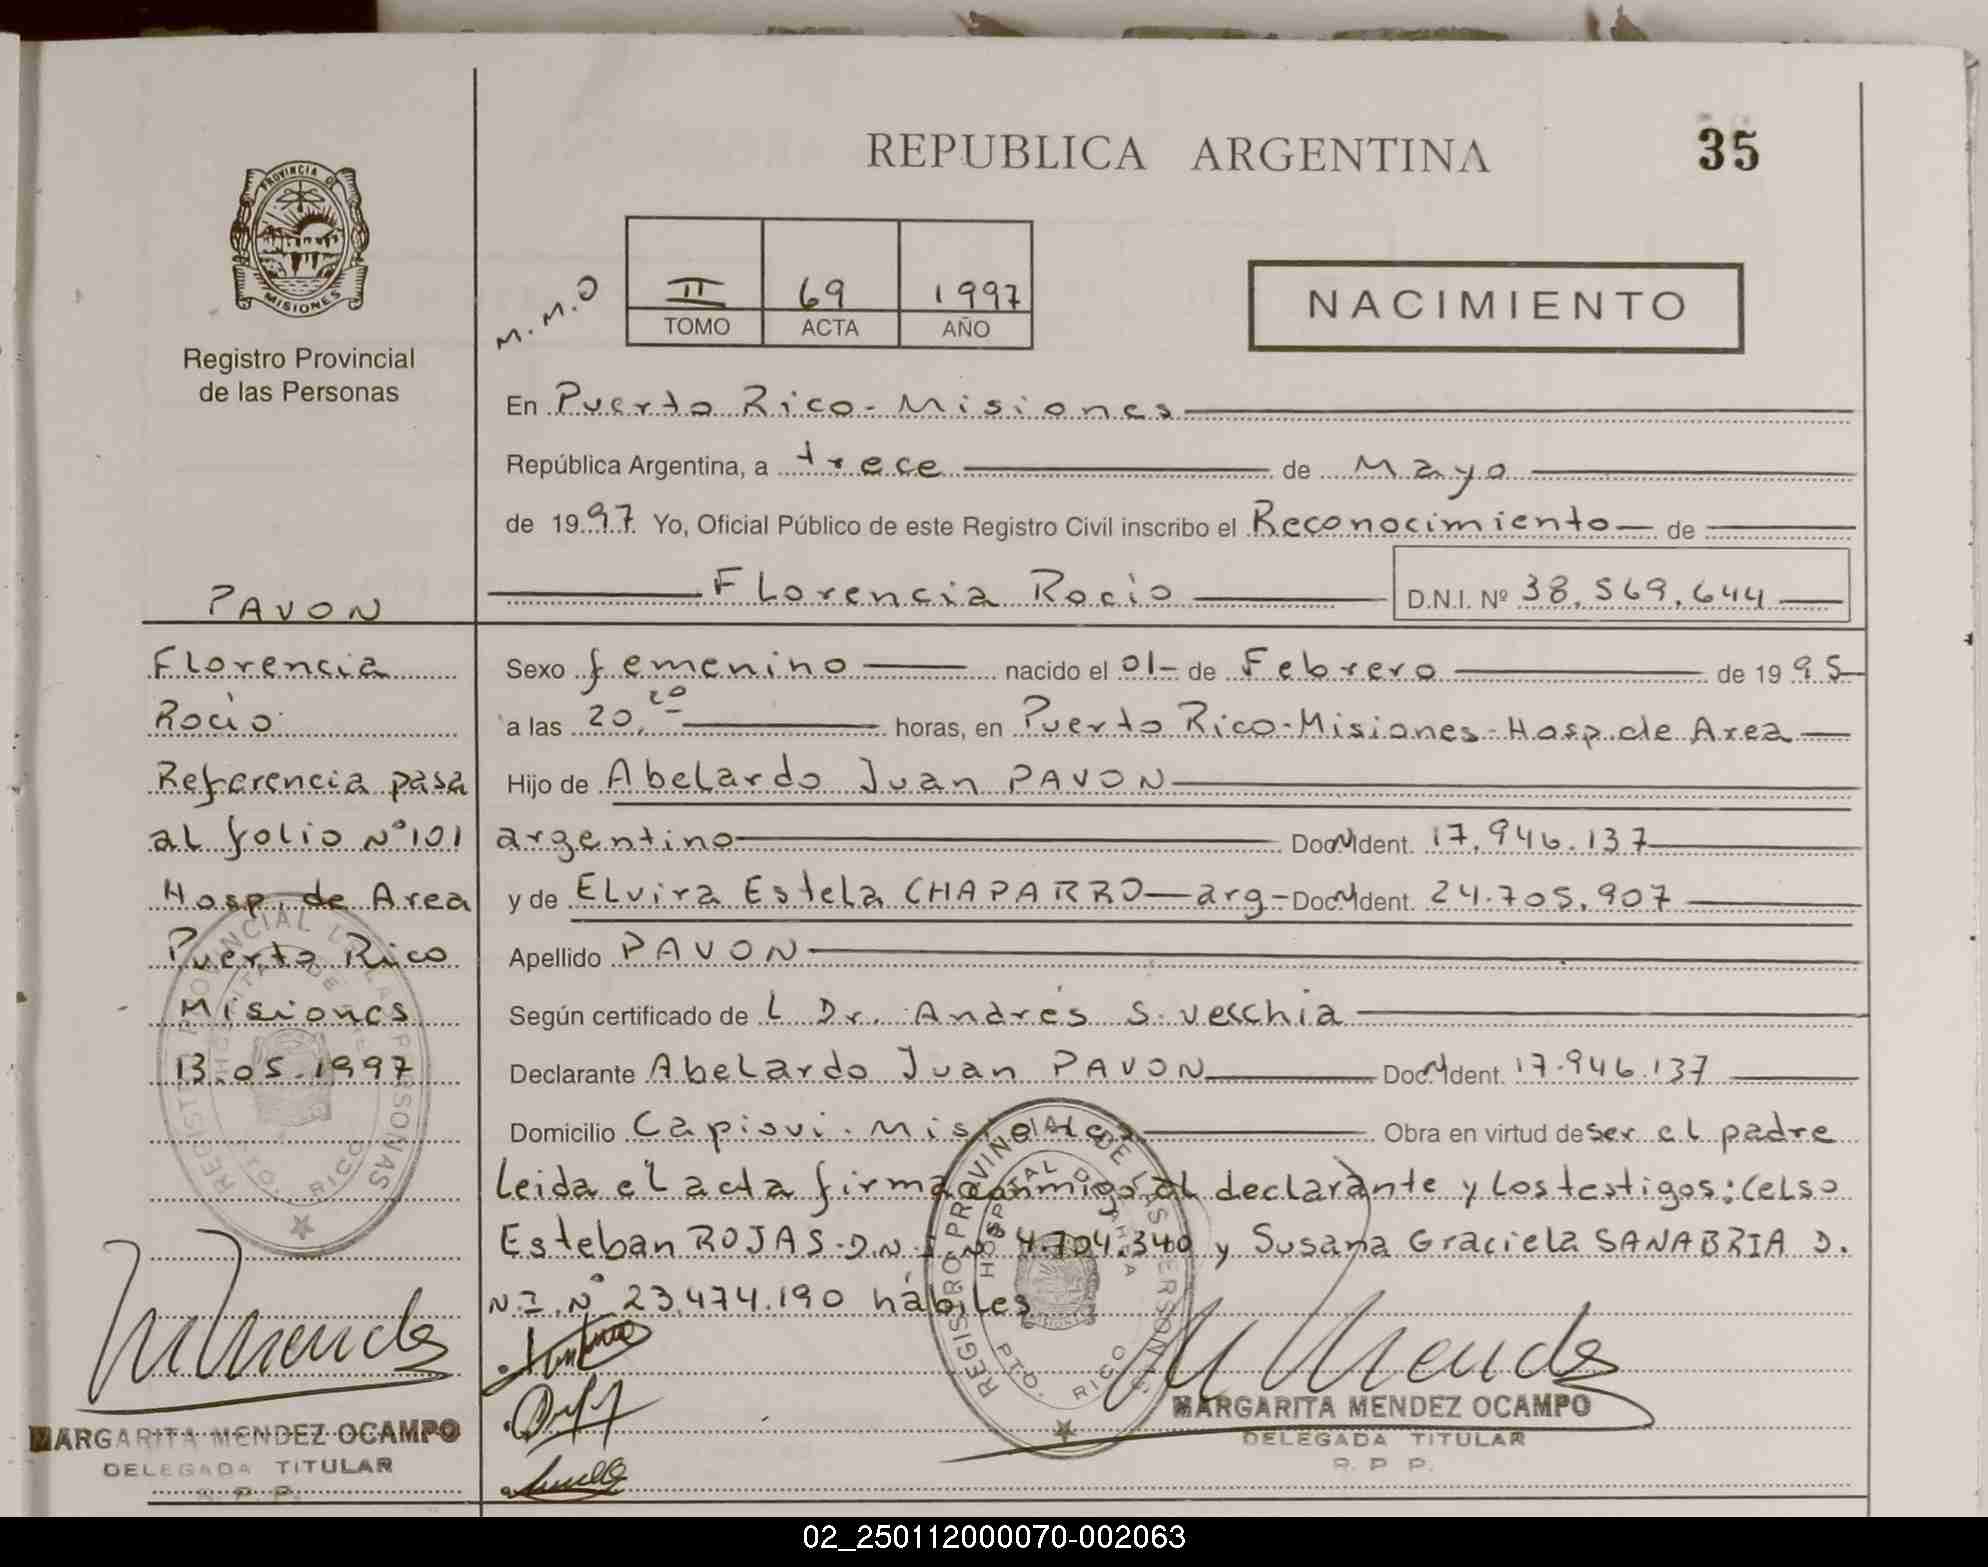 REPUBLICA ARGENTINA
35
PROVINCIA DE
MISIONES
Registro Provincial
de las Personas
M.M.O
II 69 1997
TOMO ACTA AÑO
NACIMIENTO
En Puerto Rico - Misiones
República Argentina, a trece de Mayo
de 1997. Yo, Oficial Público de este Registro Civil inscribo el Reconocimiento de
Florencia Rocío D.N.I. Nº 38.569.644
PAVON
Florencia
Rocío
Referencia pasa
al folio Nº 101
Hosp. de Area
Puerto Rico
Misiones
13.05.1997
Sexo femenino nacido el 01- de Febrero de 1995
a las 20,20 horas, en Puerto Rico-Misiones-Hosp. de Area
Hijo de Abelardo Juan PAVON
argentino Doc. Ident. 17.946.137
y de Elvira Estela CHAPARRO — arg- Doc. Ident. 24.705.907
Apellido PAVON
Según certificado de L Dr. Andrés S. Vecchia
Declarante Abelardo Juan PAVON Doc. Ident. 17.946.137
Domicilio Capiovi. Misiones Obra en virtud de ser el padre
Leida el acta firma conmigo el declarante y los testigos: Celso
Esteban ROJAS-D.N.I. Nº 4.704.340 y Susana Graciela SANABRIA D.
N.I. Nº 23.474.190 hábiles
REGISTRO PROVINCIAL DE LAS PERSONAS
HOSPITAL DE AREA
PTO. RICO
REGISTRO PROVINCIAL DE LAS PERSONAS
HOSPITAL DE AREA
PTO. RICO
MARGARITA MENDEZ OCAMPO
DELEGADA TITULAR
R. P. P.
MARGARITA MENDEZ OCAMPO
DELEGADA TITULAR
R. P. P.
02_250112000070-002063